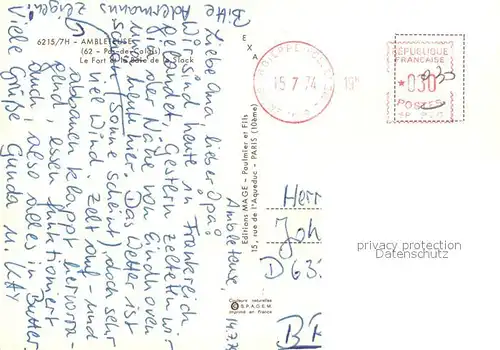 6215/7H - AMBLETEUSE
(62 - Pas-de-Calais)
Le Fort et la Baie de la Slack
Bitte
Ackermanns
zeigen!
Ambleteuse,
14.7.74
Liebe Oma, lieber Opa!
Wir sind heute in Frankreich
gelandet. Gestern zelteten wir
in der Nähe von Eindhoven
und heute hier. Das Wetter ist
schön (Sonne scheint), doch sehr
viel Wind. Zelt auf- und
abbauen klappt hervorra-
gend, essen funktioniert
auch, also alles in Butter.
Viele Grüße Gunda u. Kay
EXA
Editions MAGE - Paulmier et Fils
15, rue de l'Aqueduc - PARIS (10ème)
Couleurs naturelles
S.P.A.G.E.M.
imprimé en france
15 7 74
RÉPUBLIQUE
FRANÇAISE
★030
POSTES
Herr
Joh
D 63
privacy protection
Datenschutz